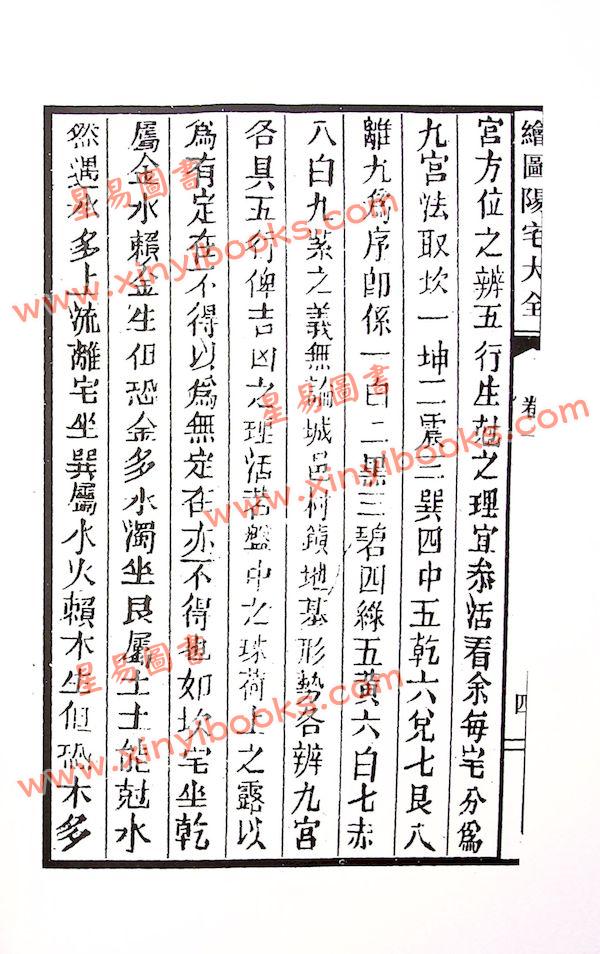 繪圖陽宅大全
卷一
四
宮方位之辨五行生尅之理宜叅活看余每宅分爲
九宮法取坎一坤二震三巽四中五乾六兌七艮八
離九爲序卽係一白二黑三碧四綠五黃六白七赤
八白九紫之義無論城邑村鎮地基形勢各辨九宮
各具五行俾吉凶之理活若盤中之珠荷上之露以
爲有定在不得以爲無定在亦不得也如坎宅坐乾
屬金水賴金生但恐金多水濁坐艮屬土土能尅水
然遇水多上流離宅坐巽屬木火賴木生但恐木多
星易圖書
www.xinyibooks.com
星易圖書
www.xinyibooks.com
星易圖書
www.xinyibooks.com
星易圖書
www.xinyibooks.com